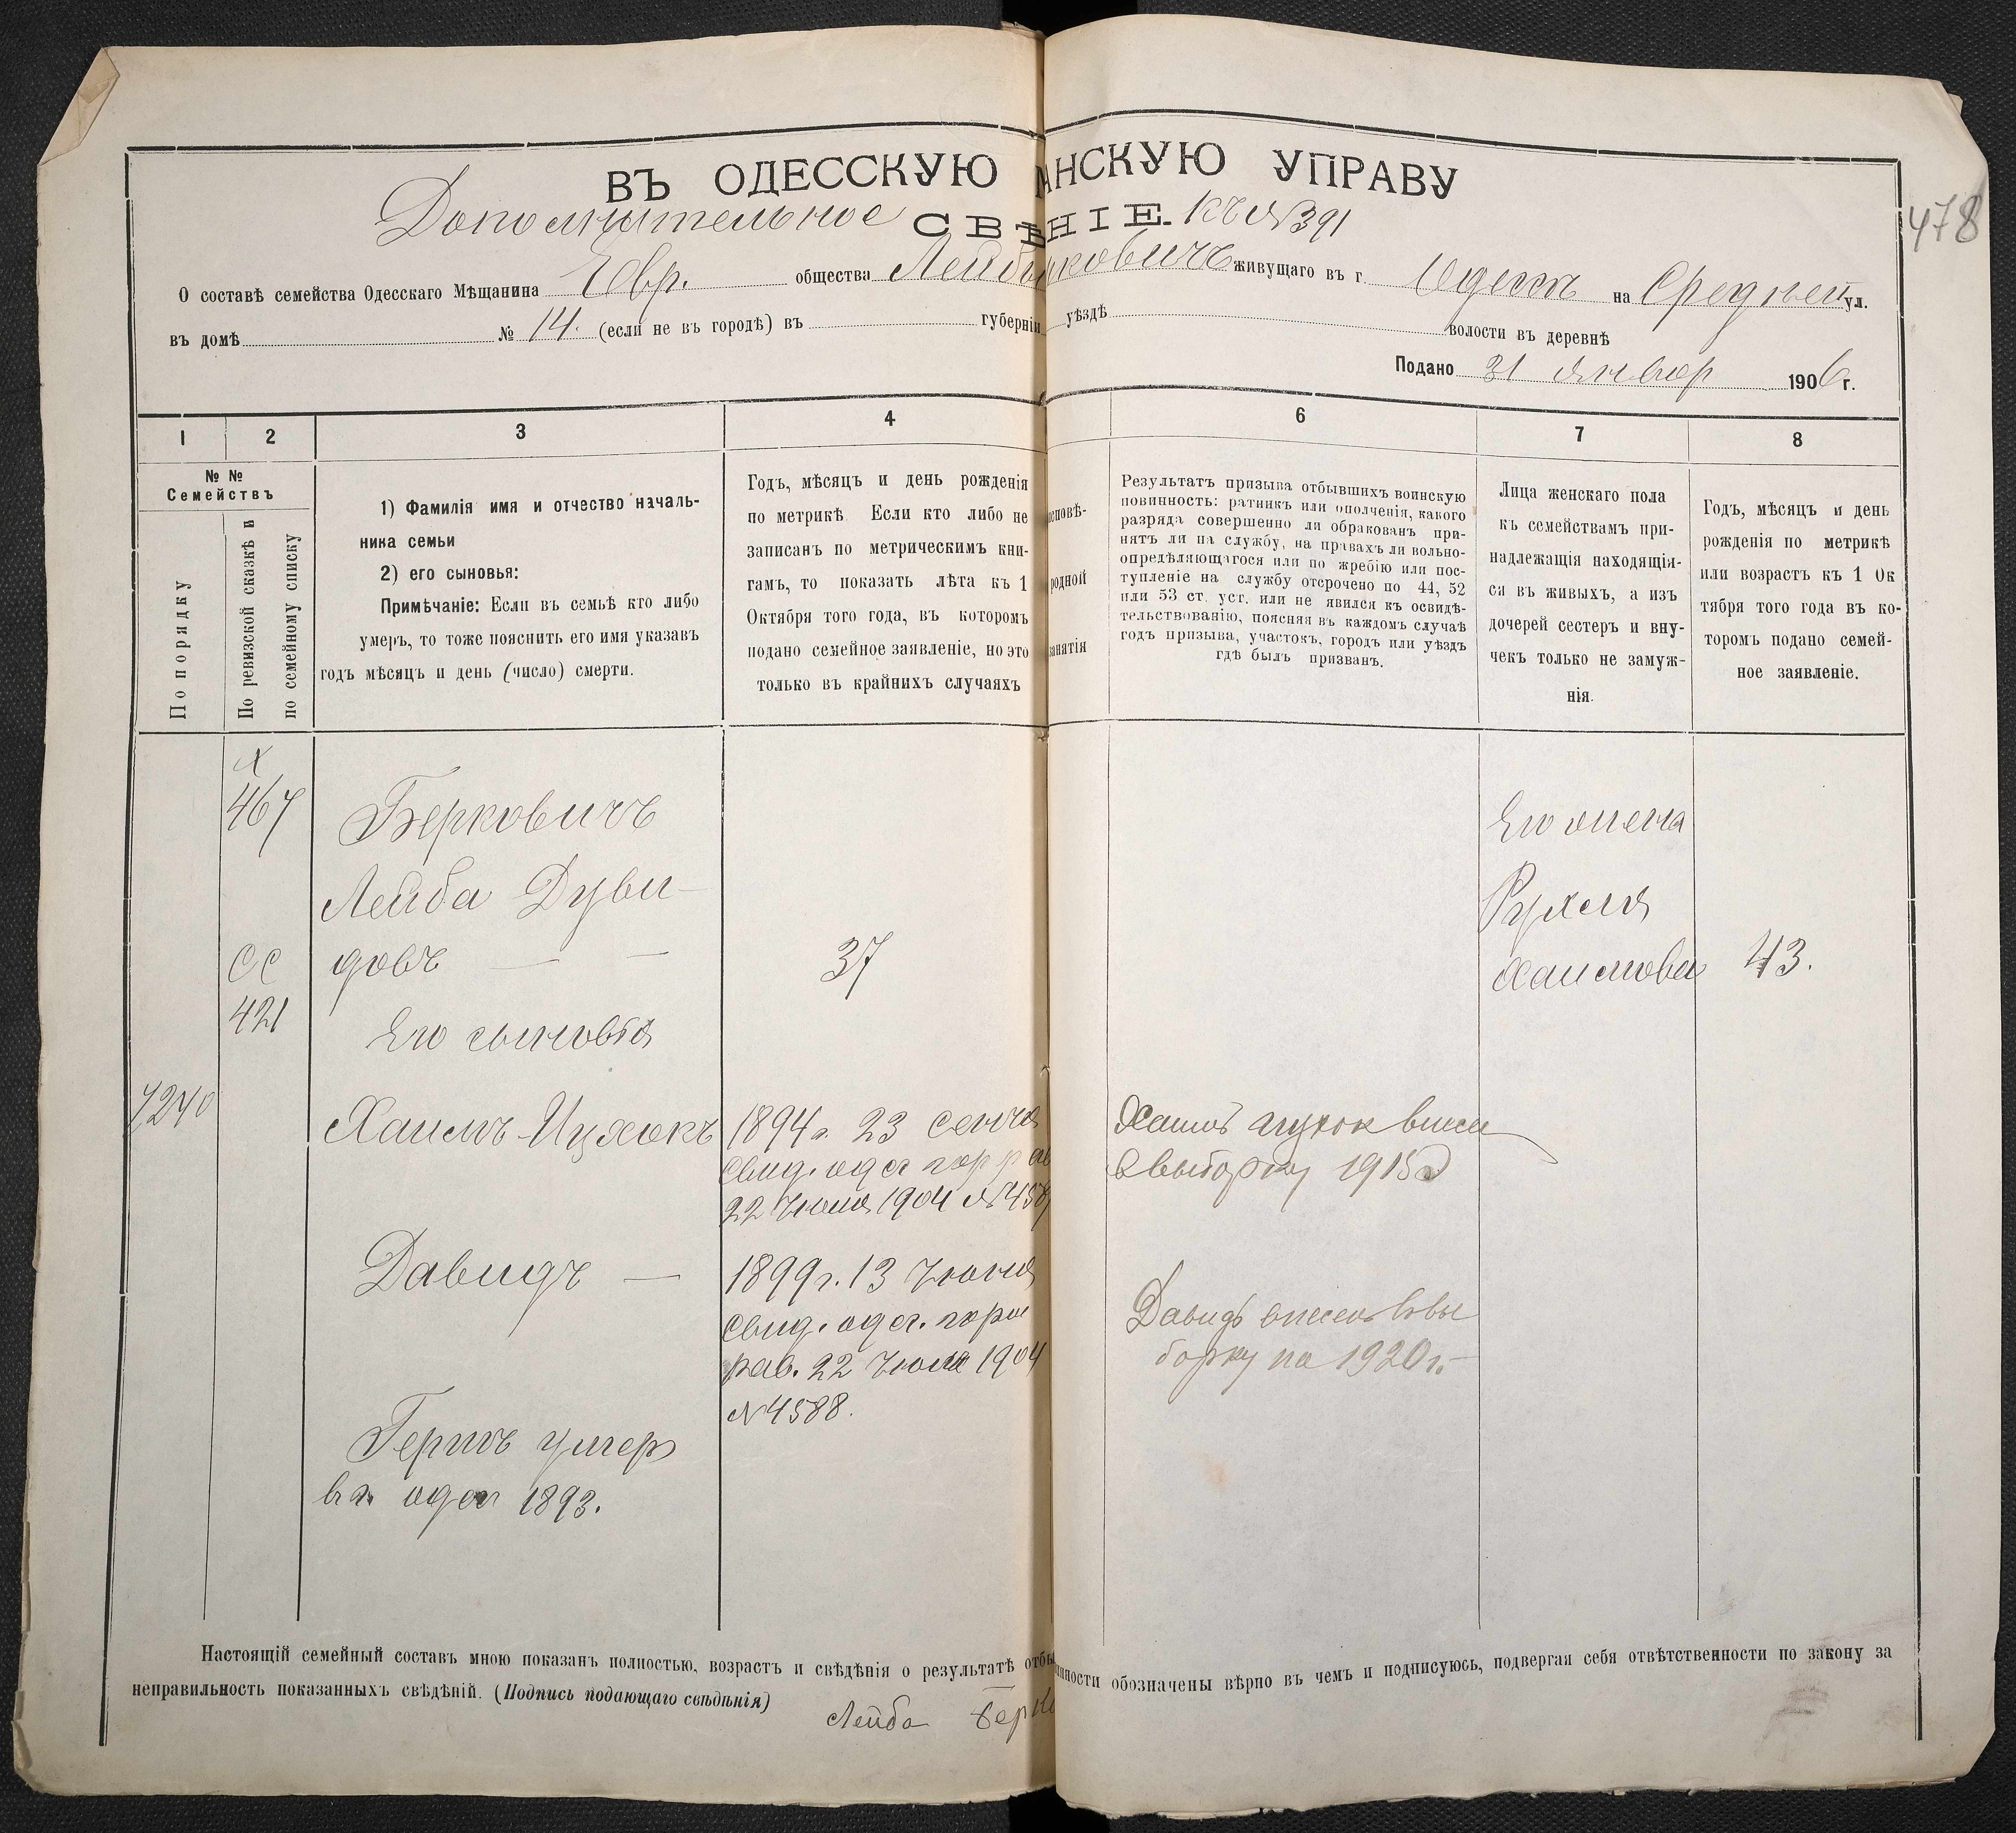 ВЪ ОДЕССКУЮ АНСКУЮ УПРАВУ
Дополнительное СВѢНІЕ. къ №391
478
О составѣ семейства Одесскаго Мѣщанина Евр. общества живущаго въ г. Одессѣ на Средней ул.
въ домѣ № 14. (если не въ городѣ) въ губерніи уѣздѣ волости въ деревнѣ
Подано 31 Январ 1906 г.
1 2 3 4 6 7 8
№ №
Семействъ
По порядку
По ревизской сказкѣ и
по семейному списку
1) Фамилія имя и отчество началь-
ника семьи
2) его сыновья:
Примѣчаніе: Если въ семьѣ кто либо
умеръ, то тоже пояснить его имя указавъ
годъ мѣсяцъ и день (число) смерти.
Годъ, мѣсяцъ и день рожденія
по метрикѣ Если кто либо не
записанъ по метрическимъ кни-
гамъ, то показать лѣта къ 1
Октября того года, въ которомъ
подано семейное заявленіе, но это
только въ крайнихъ случаяхъ
сповѣ-
родной
занятія
Результатъ призыва отбывшихъ воинскую
повинность: ратникъ или ополченія, какого
разряда совершенно ли обракованъ при-
нятъ ли на службу, на правахъ ли вольно-
опредѣляющагося или по жребію или пос-
тупленіе на службу отсрочено по 44, 52
или 53 ст. уст. или не явился къ освидѣ-
тельствованію, поясняя въ каждомъ случаѣ
годъ призыва, участокъ, городъ или уѣздъ
гдѣ былъ призванъ.
Лица женскаго пола
къ семействамъ при-
надлежащія находящія-
ся въ живыхъ, а изъ
дочерей сестеръ и вну-
чекъ только не замуж-
нія.
Годъ, мѣсяцъ и день
рожденія по метрикѣ
или возрастъ къ 1 Ок
тября того года въ ко-
торомъ подано семей-
ное заявленіе.
467
Берковичъ
Лейба Дуви-
довъ
37
СС
421
Его сыновья
7240
Хаимъ-Ицхокъ
1894 г. 23
свид. одес гор рав
22 Іюля 1904 №458
Давидъ —
1899 г. 13 Іюня
свид. одес. горо
рав. 22 Іюля 1904
№4588.
Гершъ умер
в г. одес 1893.
Хаимъ
в выборку 1915
Давидъ внесенъ в вы
борку на 1920 г.
Его жена
Рухля
Хаимова 43.
Настоящій семейный составъ мною показанъ полностью, возрастъ и свѣдѣнія о результатѣ отбы нности обозначены вѣрно въ чемъ и подписуюсь, подвергая себя отвѣтственности по закону за
неправильность показанныхъ свѣдѣній. (Подпись подающаго свѣдѣнія)
Лейба Берко